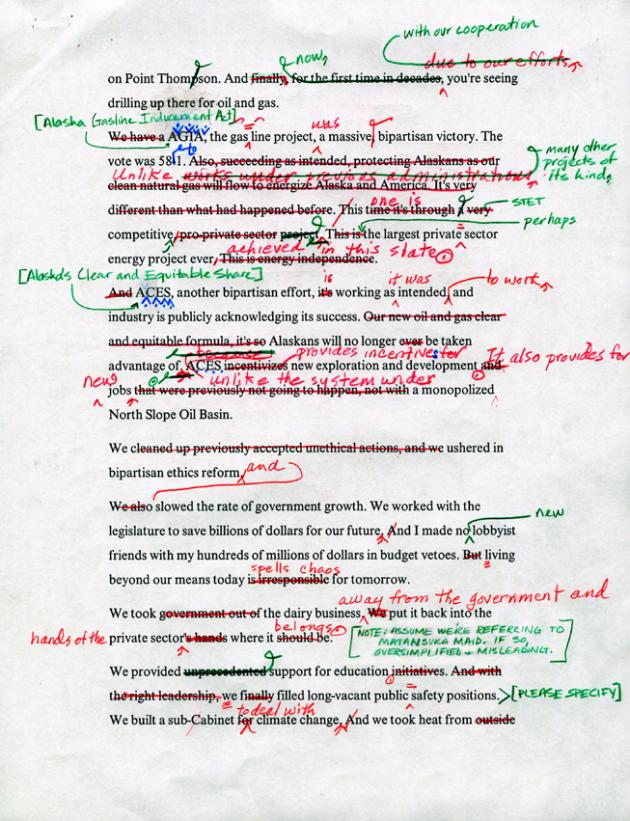 with our cooperation
now,
due to our efforts
on Point Thompson. And finally, for the first time in decades, you're seeing
drilling up there for oil and gas.
[Alaska Gasline Inducement Act]
was
We have a AGIA, the gas line project, a massive, bipartisan victory. The
to
many other
vote was 58-1. Also, succeeding as intended, protecting Alaskans as our
projects of
Unlike works under previous administrations
its kind,
clean natural gas will flow to energize Alaska and America. It's very
one is
STET
different than what had happened before. This time it's through a very
perhaps
competitive, pro-private sector project. This is the largest private sector
achieved in this state
energy project ever, This is energy independence.
[Alaska's Clear and Equitable Share]
is
it was
to work,
And ACES, another bipartisan effort, it's working as intended, and
industry is publicly acknowledging its success. Our new oil and gas clear
and equitable formula, it's so Alaskans will no longer ever be taken
because
provides incentives for
It also provides for
advantage of. ACES incentivizes new exploration and development and
new
unlike the system under
jobs that were previously not going to happen, not with a monopolized
North Slope Oil Basin.
We cleaned up previously accepted unethical actions, and we ushered in
bipartisan ethics reform,
and
We also slowed the rate of government growth. We worked with the
new
legislature to save billions of dollars for our future, And I made no lobbyist
friends with my hundreds of millions of dollars in budget vetoes. But living
spells chaos
beyond our means today is irresponsible for tomorrow.
away from the government and
We took government out of the dairy business, We put it back into the
belongs
hands of the
private sector's hands where it should be.
[NOTE: ASSUME WE'RE REFERRING TO
MATANSUKA MAID. IF SO,
OVERSIMPLIFIED + MISLEADING.]
We provided unprecedented support for education initiatives. And with
the right leadership, we finally filled long-vacant public safety positions.
[PLEASE SPECIFY]
to deal with
We built a sub-Cabinet for climate change, And we took heat from outside